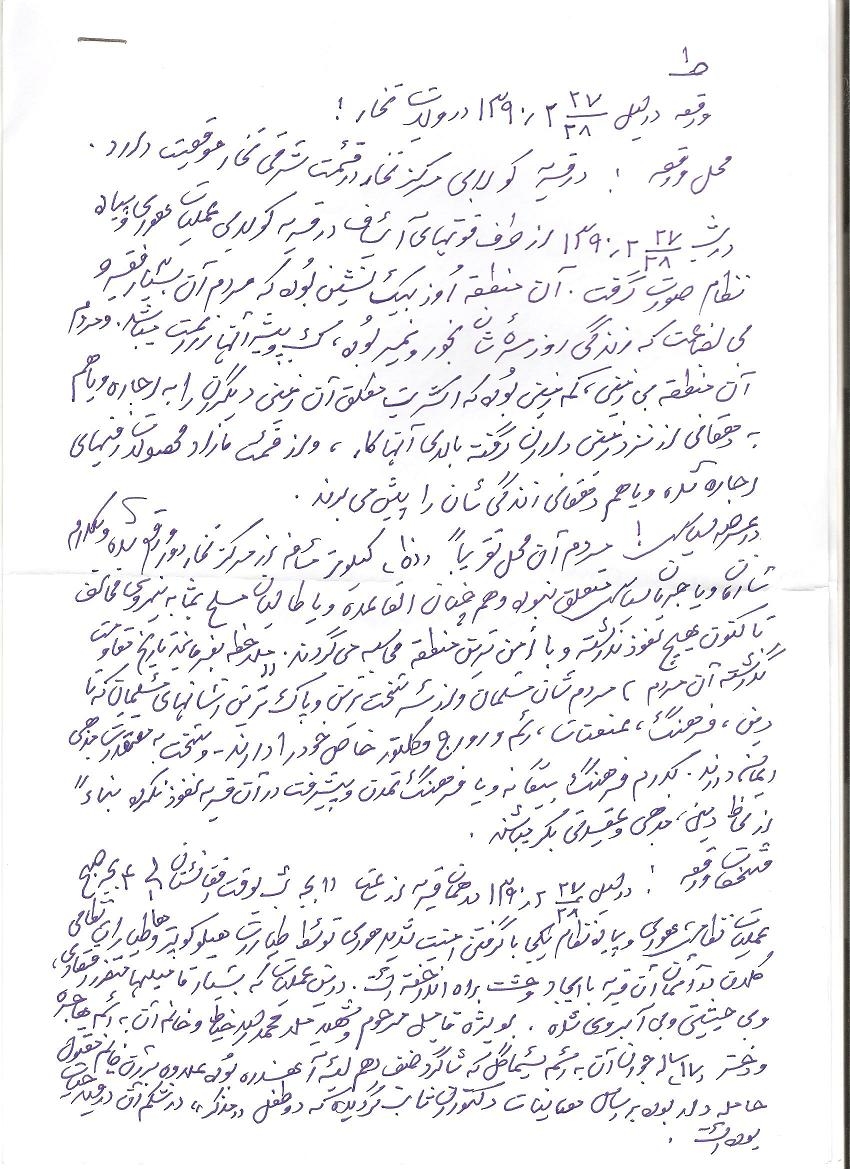 ط
وقعه در لیل ۲۷/۲۸ ۲ ر ۱۳۹۰ در ولایت تخار !
محل وقعه ! در قریه کولابی مرکز تخار در قسمت شرقی تخار موقعیت دارد .
در شب ۲۷/۲۸ ۲ ر ۱۳۹۰ از طرف قوتهای آیساف در قریه کولابی عملیات هوای و پیاده
نظام صورت گرفت . آن منطقه اوزبیک نشین بوده که مردم آن بسیار فقیر و
بی بضاعت که زندگی روزمره شان بخور و نمیر بوده ، کسب و پیشه آنها زراعت میباشد . و مردم
آن منطقه بی زمین ، کم زمین بوده که اکثریت مطلق آن زمین دیگران را به اجاره و یا هم
به دهقانی از نزد زمین داران گرفته بالای آنها کار ، و از قسمت مازاد محصولات زمینهای
اجاره شده و یا هم دهقانی زندگی شان را پیش می برند .
در عرصه سیاسی ! مردم آن محل تقریباً کیلومتر مسافه از مرکز تخار دور واقع شده و بکدام
سازمان و یا جریان سیاسی متعلق نبوده و هم چنان القاعده و یا طالبان مسلح بمثابه نیروی مخالف
تا کنون هیچ نفوذ نداشته و با امن ترین منطقه محاسبه می گردند . ملاحظه بفرمائید تاریخ مقاومت
گذشته آن مردم ، مردم شان مسلمان و از سر سخت ترین و پاک ترین انسانهای مسلمان که تا
دین ، فرهنگ ، عنعنات ، رسم و رواج و کلتور خاص خود را دارند - و سخت به معتقدات مذهبی
ایمان دارند . کدام فرهنگ بیگانه و یا فرهنگ تمدن و پیشرفت در آن قریه نفوذ نکرده بناءً
از لحاظ دینی ، مذهبی و عقیدتی بکر میباشند .
مشخصات وقعه ! در لیل ۲۷/۲۸ ۲ ر ۱۳۹۰ در همان قریه از ساعت ۱۱ بجه شب بوقت افغانستان الی ۴ بجه صبح
عملیات نظامی هوای و پیاده نظام یکی با گرفتن امنیت شدید هوای توسط طیارات هیلوکوپتر ها و طیاره ای نظامی
کلان در آسمان آن قریه با ایجاد وحشت براه انداخته است . درین عملیات که بسیار فامیلها متضرر اقتصادی ،
و بی حیثیتی و بی آبروی شده . بویژه فامیل مرحوم و شهید ملا محمد خیاط و خانم آن به اسم هاجره
و دختر ساله جوان آن به اسم شیماگل که شاگرد صنف دهم لیسه آ بوده علاوه برآن خانم مقتول
حامله دار بوده بر اساس معاینات داکتران ثابت گردیده که دو طفل « مذکر » در شکم آن در قید حیات
بوده است .